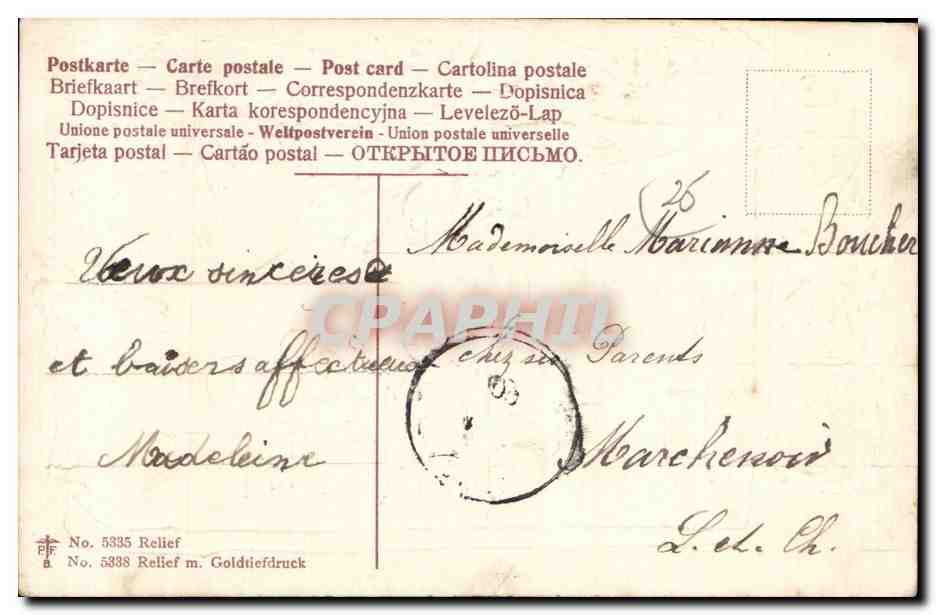 Postkarte — Carte postale — Post card — Cartolina postale
Briefkaart — Brefkort — Correspondenzkarte — Dopisnica
Dopisnice — Karta korespondencyjna — Levelező-Lap
Unione postale universale - Weltpostverein - Union postale universelle
Tarjeta postal — Cartão postal — ОТКРЫТОЕ ПИСЬМО.
26
Mademoiselle Marianne Boucher
chez ses Parents
Marchenoir
L. et. Ch.
Vœux sincères
et baisers affectueux
Madeleine
CPAPHIL
09
P. F.
B.
No. 5335 Relief
No. 5338 Relief m. Goldtiefdruck